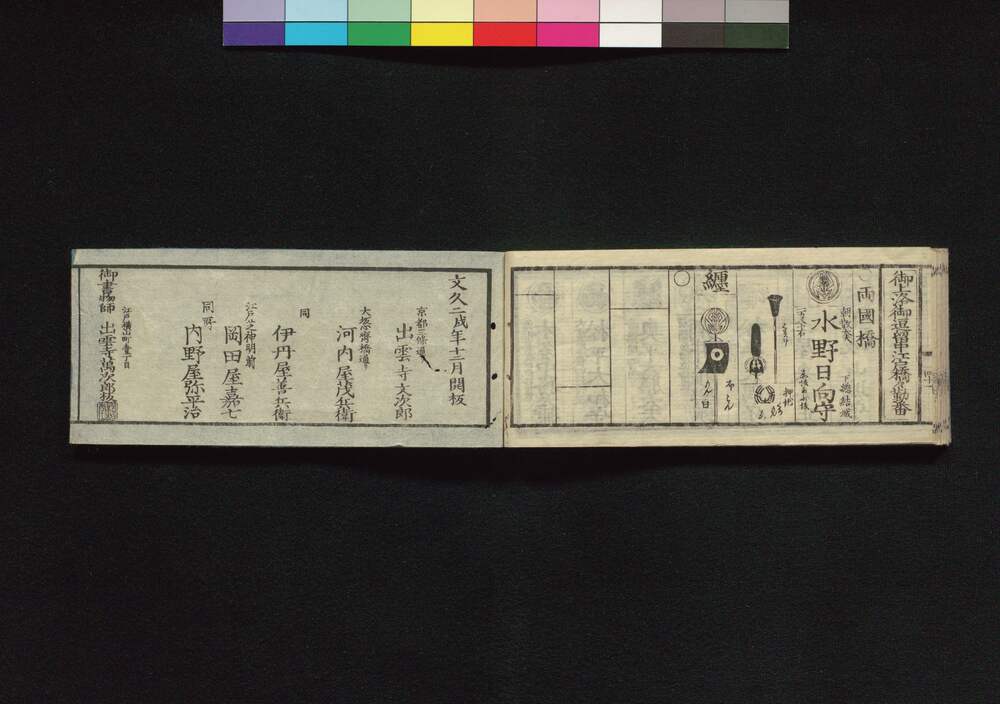 御上洛御道留中江戸橋々勤番
両國橋
朝散大夫
下総結城
水野日向守
纏
文久二戌年十二月開板
京都三條通
出雲寺文次郎
大坂心斎橋通り
河内屋茂兵衛
同
伊丹屋善兵衛
江戸芝神明前
岡田屋嘉七
同所
内野屋弥平治
江戸横山町壱丁目
御書物師 出雲寺萬次郎板